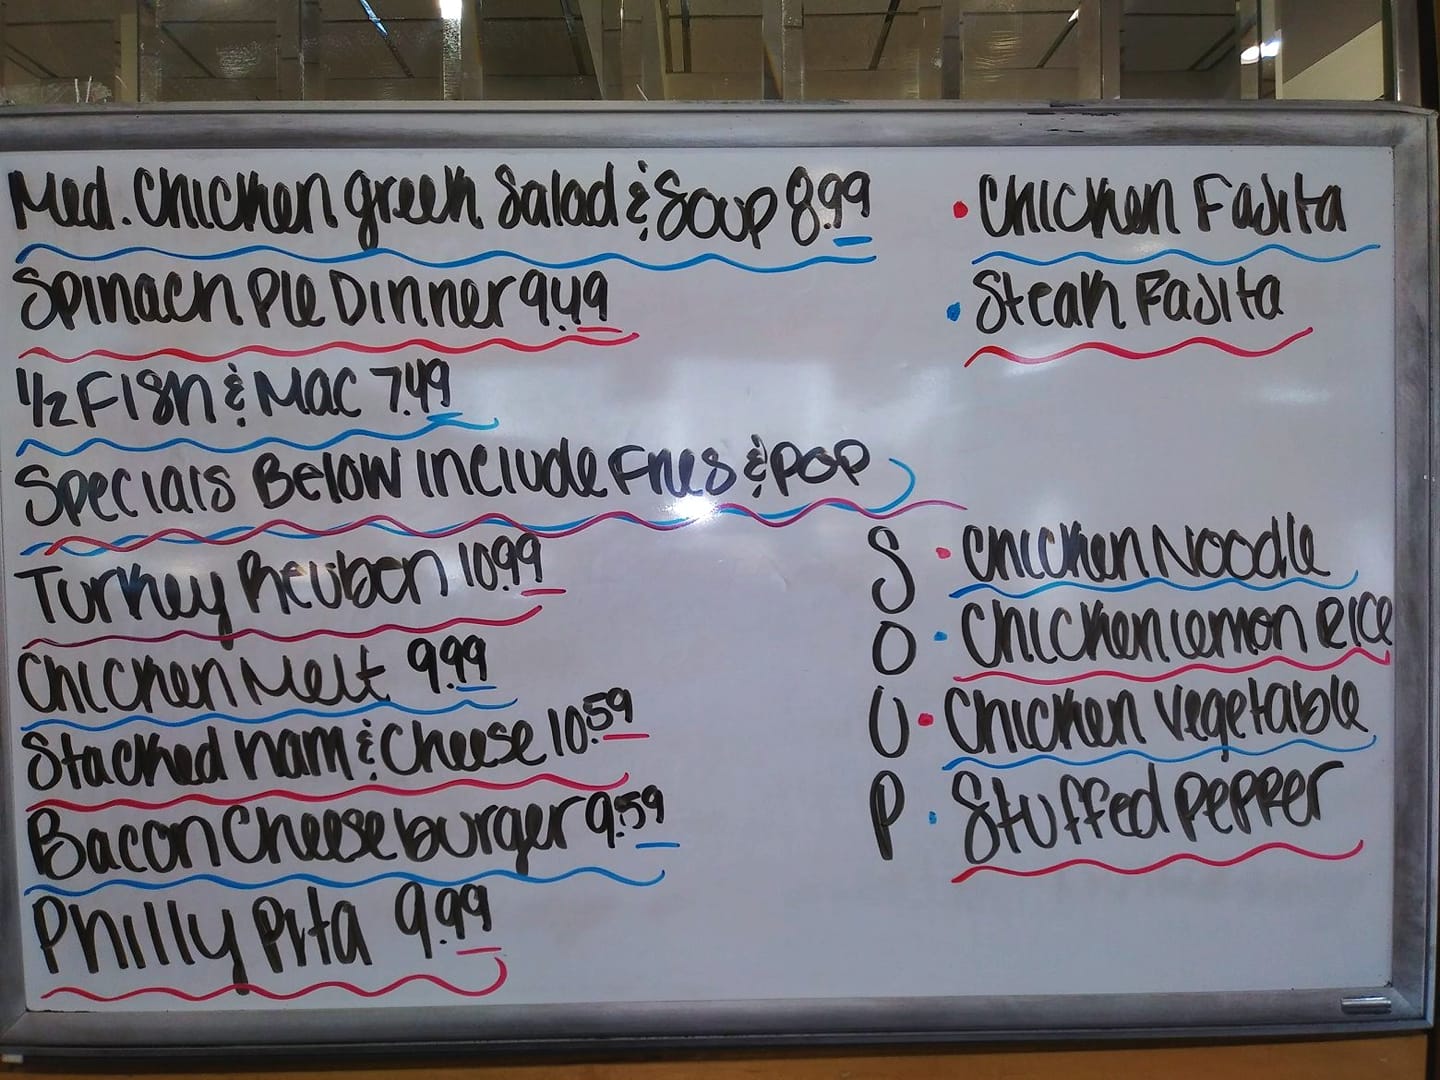 Med. Chicken greek Salad & Soup 8.99
Spinach Pie Dinner 9.49
1/2 Fish & Mac 7.49
Specials Below include Fries & POP
Turkey Reuben 10.99
Chicken Melt 9.99
Stacked ham & Cheese 10.59
Bacon Cheeseburger 9.59
Philly Pita 9.99
• Chicken Fajita
• Steak Fajita
SOUP
• Chicken Noodle
• Chicken lemon Rice
• Chicken Vegetable
• Stuffed Pepper